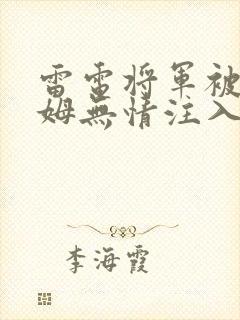 雷雷将軍被
姆無情注入
李海霞